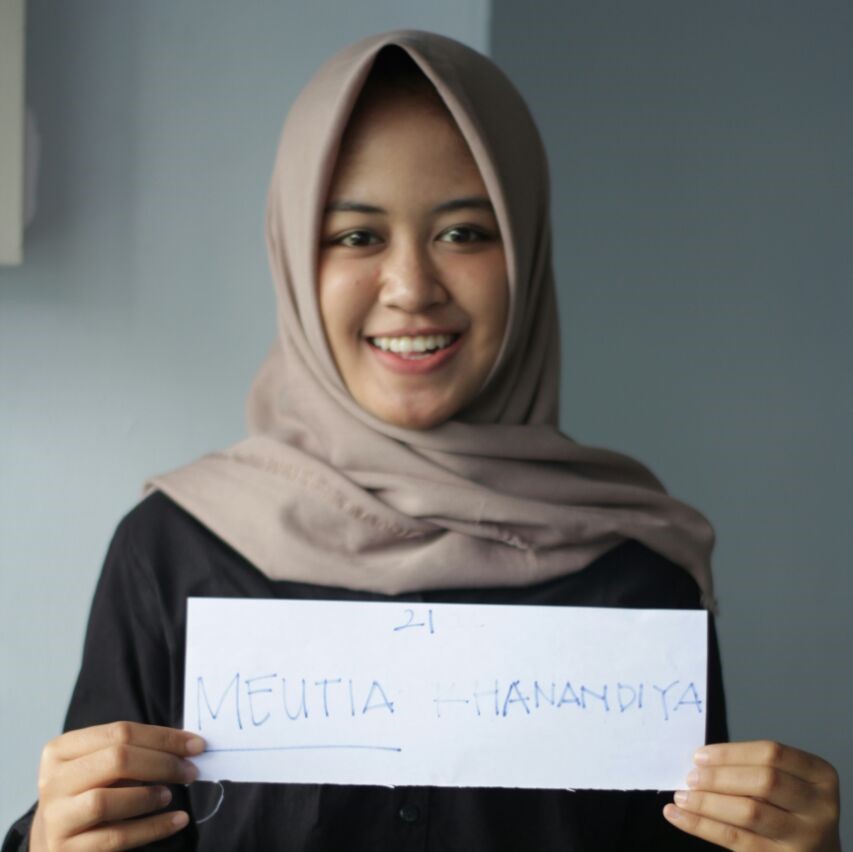 21
MEUTIA KHANANDIYA